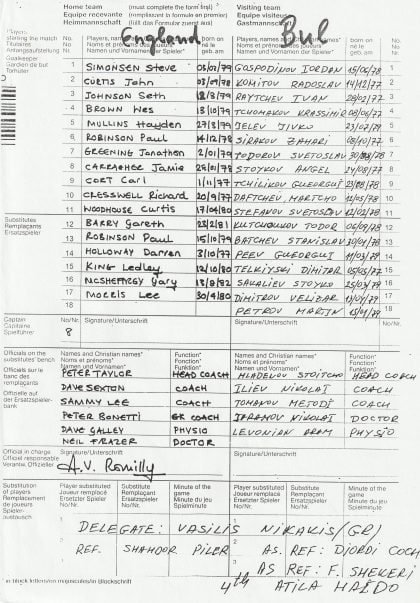 Home team (must complete the form first) Visiting team
Equipe recevante (remplissant la formule en premier) Equipe visiteuse
Heimmannschaft (füllt das Formular zuerst aus) Gastmannschaft
England Bul
Players starting the match No. Players, names born on Players, names born on No.
Titulaires No. Noms et prénoms des joueurs né le Noms et prénoms des joueurs né le No.
Anfangsaufstellung Nr. Namen und Vornamen der Spieler geb. am Namen und Vornamen der Spieler geb. am Nr.
Goalkeeper
Gardien de but
Torhüter
1 SIMONSEN Steve GOSPODINOV IORDAN 15/06/78 1
2 CURTIS John 03/09/78 KOMITOV RADOSLAV 14/12/77 2
3 JOHNSON Seth 12/3/79 RAYTCHEV IVAN 3
4 BROWN Wes 13/10/79 TCHOMAKOV KRASSIMIR 4
5 MULLINS Hayden 27/3/79 JELEV JIVKO 23/07/79 5
6 ROBINSON Paul 14/12/78 SIRAKOV ZAHARI 08/10/77 6
7 GREENING Jonathan 2/01/79 TODOROV SVETOSLAV 30/08/78 7
8 CARRAGHER Jamie 28/01/78 STOYKOV ANGEL 8
9 CORT Carl 1/11/77 TCHILIKOV GUEORGUI 23/08/78 9
10 CRESSWELL Richard 20/9/77 DAFTCHEV MARTCHO 10
11 WOODHOUSE Curtis 17/04/80 STEFANOV SVETOSLAV 11
Substitutes
Remplaçants
Ersatzspieler
12 BARRY Gareth 23/2/81 KUTCHOUKOV TODOR 12
13 ROBINSON Paul 15/10/79 BATCHEV STANISLAV 13
14 HOLLOWAY Darren 3/10/77 PEEV GUEORGUI 11/03/79 14
15 KING Ledley 12/10/80 TELKIYSKI DIMITAR 05/05/77 15
16 McSHEFFREY Gary 13/8/82 SAKALIEV STOYKO 16
17 MORRIS Lee 30/4/80 DIMITROV VELIZAR 17
18 PETROV MARTIN 18
Captain
Capitaine
Spielführer
No./Nr. Signature/Unterschrift No./Nr. Signature/Unterschrift
8
Officials on the substitutes' bench Names and Christian names* Function* Names and Christian names* Function*
Officiels sur le banc des remplaçants Noms et prénoms* Fonction* Noms et prénoms* Fonction*
Offizielle auf der Ersatzspielerbank Namen und Vornamen* Funktion* Namen und Vornamen* Funktion*
PETER TAYLOR HEAD COACH MLADENOV STOITCHO HEAD COACH
DAVE SEXTON COACH ILIEV NIKOLAI COACH
SAMMY LEE COACH METODI COACH
PETER BONETTI GK COACH NIKOLAI DOCTOR
DAVE GALLEY PHYSIO LEVONIAN ARAM PHYSIO
NEIL FRAZER DOCTOR
Official in charge Signature/Unterschrift Signature/Unterschrift
Officiel responsable
Verantw. Offizieller
Substitution of players Player substituted Substitute Minute of the game Player substituted Substitute Minute of the game
Remplacement de joueurs Joueur remplacé Remplaçant Minute du jeu Joueur remplacé Remplaçant Minute du jeu
Spieleraustausch Ersetzter Spieler Ersatzspieler Spielminute Ersetzter Spieler Ersatzspieler Spielminute
No/Nr. No/Nr. No/Nr. No/Nr.
DELEGATE: VASILIS NIKAKIS (GR)
REF. AS. REF: DJORDI COCH
AS REF: F. SHEKERI
4th ATILA HAJDO
* in block letters/en majuscules/in Blockschrift